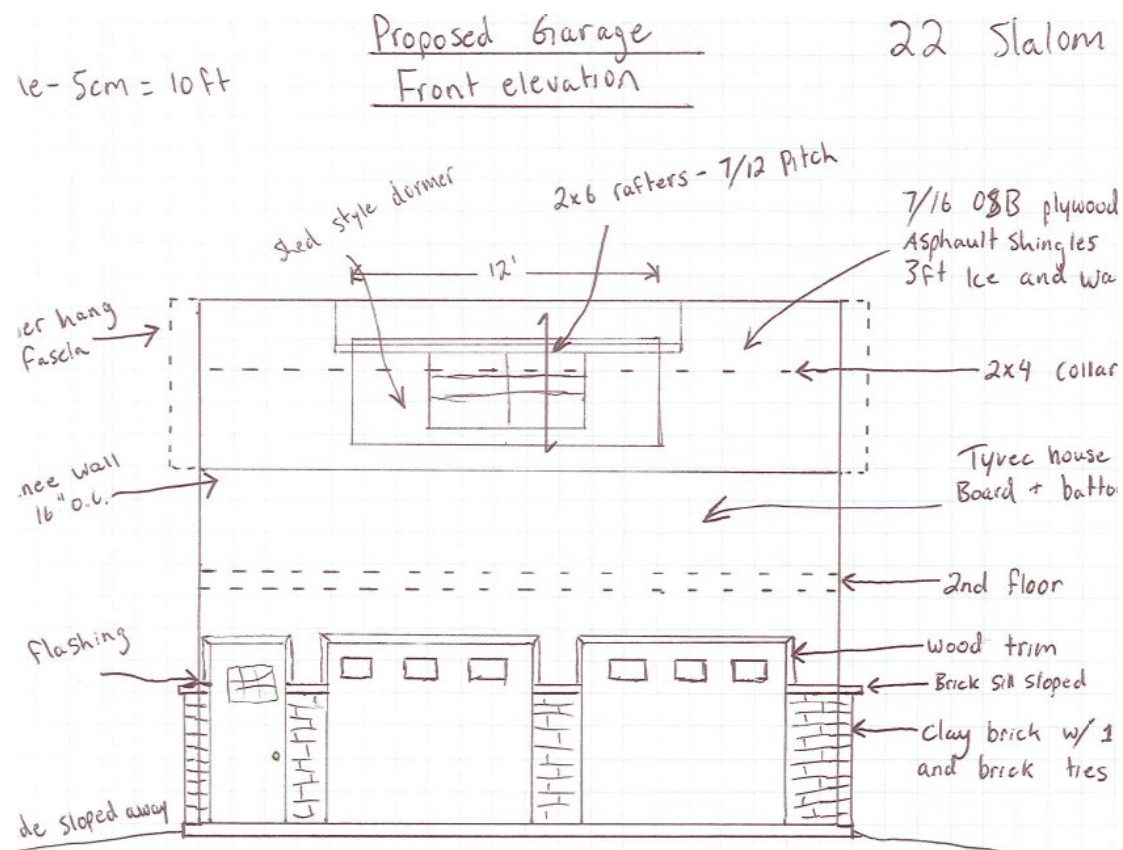 Proposed Garage
Front elevation
22 Slalom
le- 5cm = 10 ft
shed style dormer
2x6 rafters - 7/12 Pitch
12'
7/16 OSB plywood
Asphault shingles
3ft Ice and wa
er hang
fascia
2x4 collar
nee wall
16" O.C.
Tyvec house
Board + batto
2nd floor
flashing
wood trim
Brick sill sloped
Clay brick w/ 1
and brick ties
de sloped away